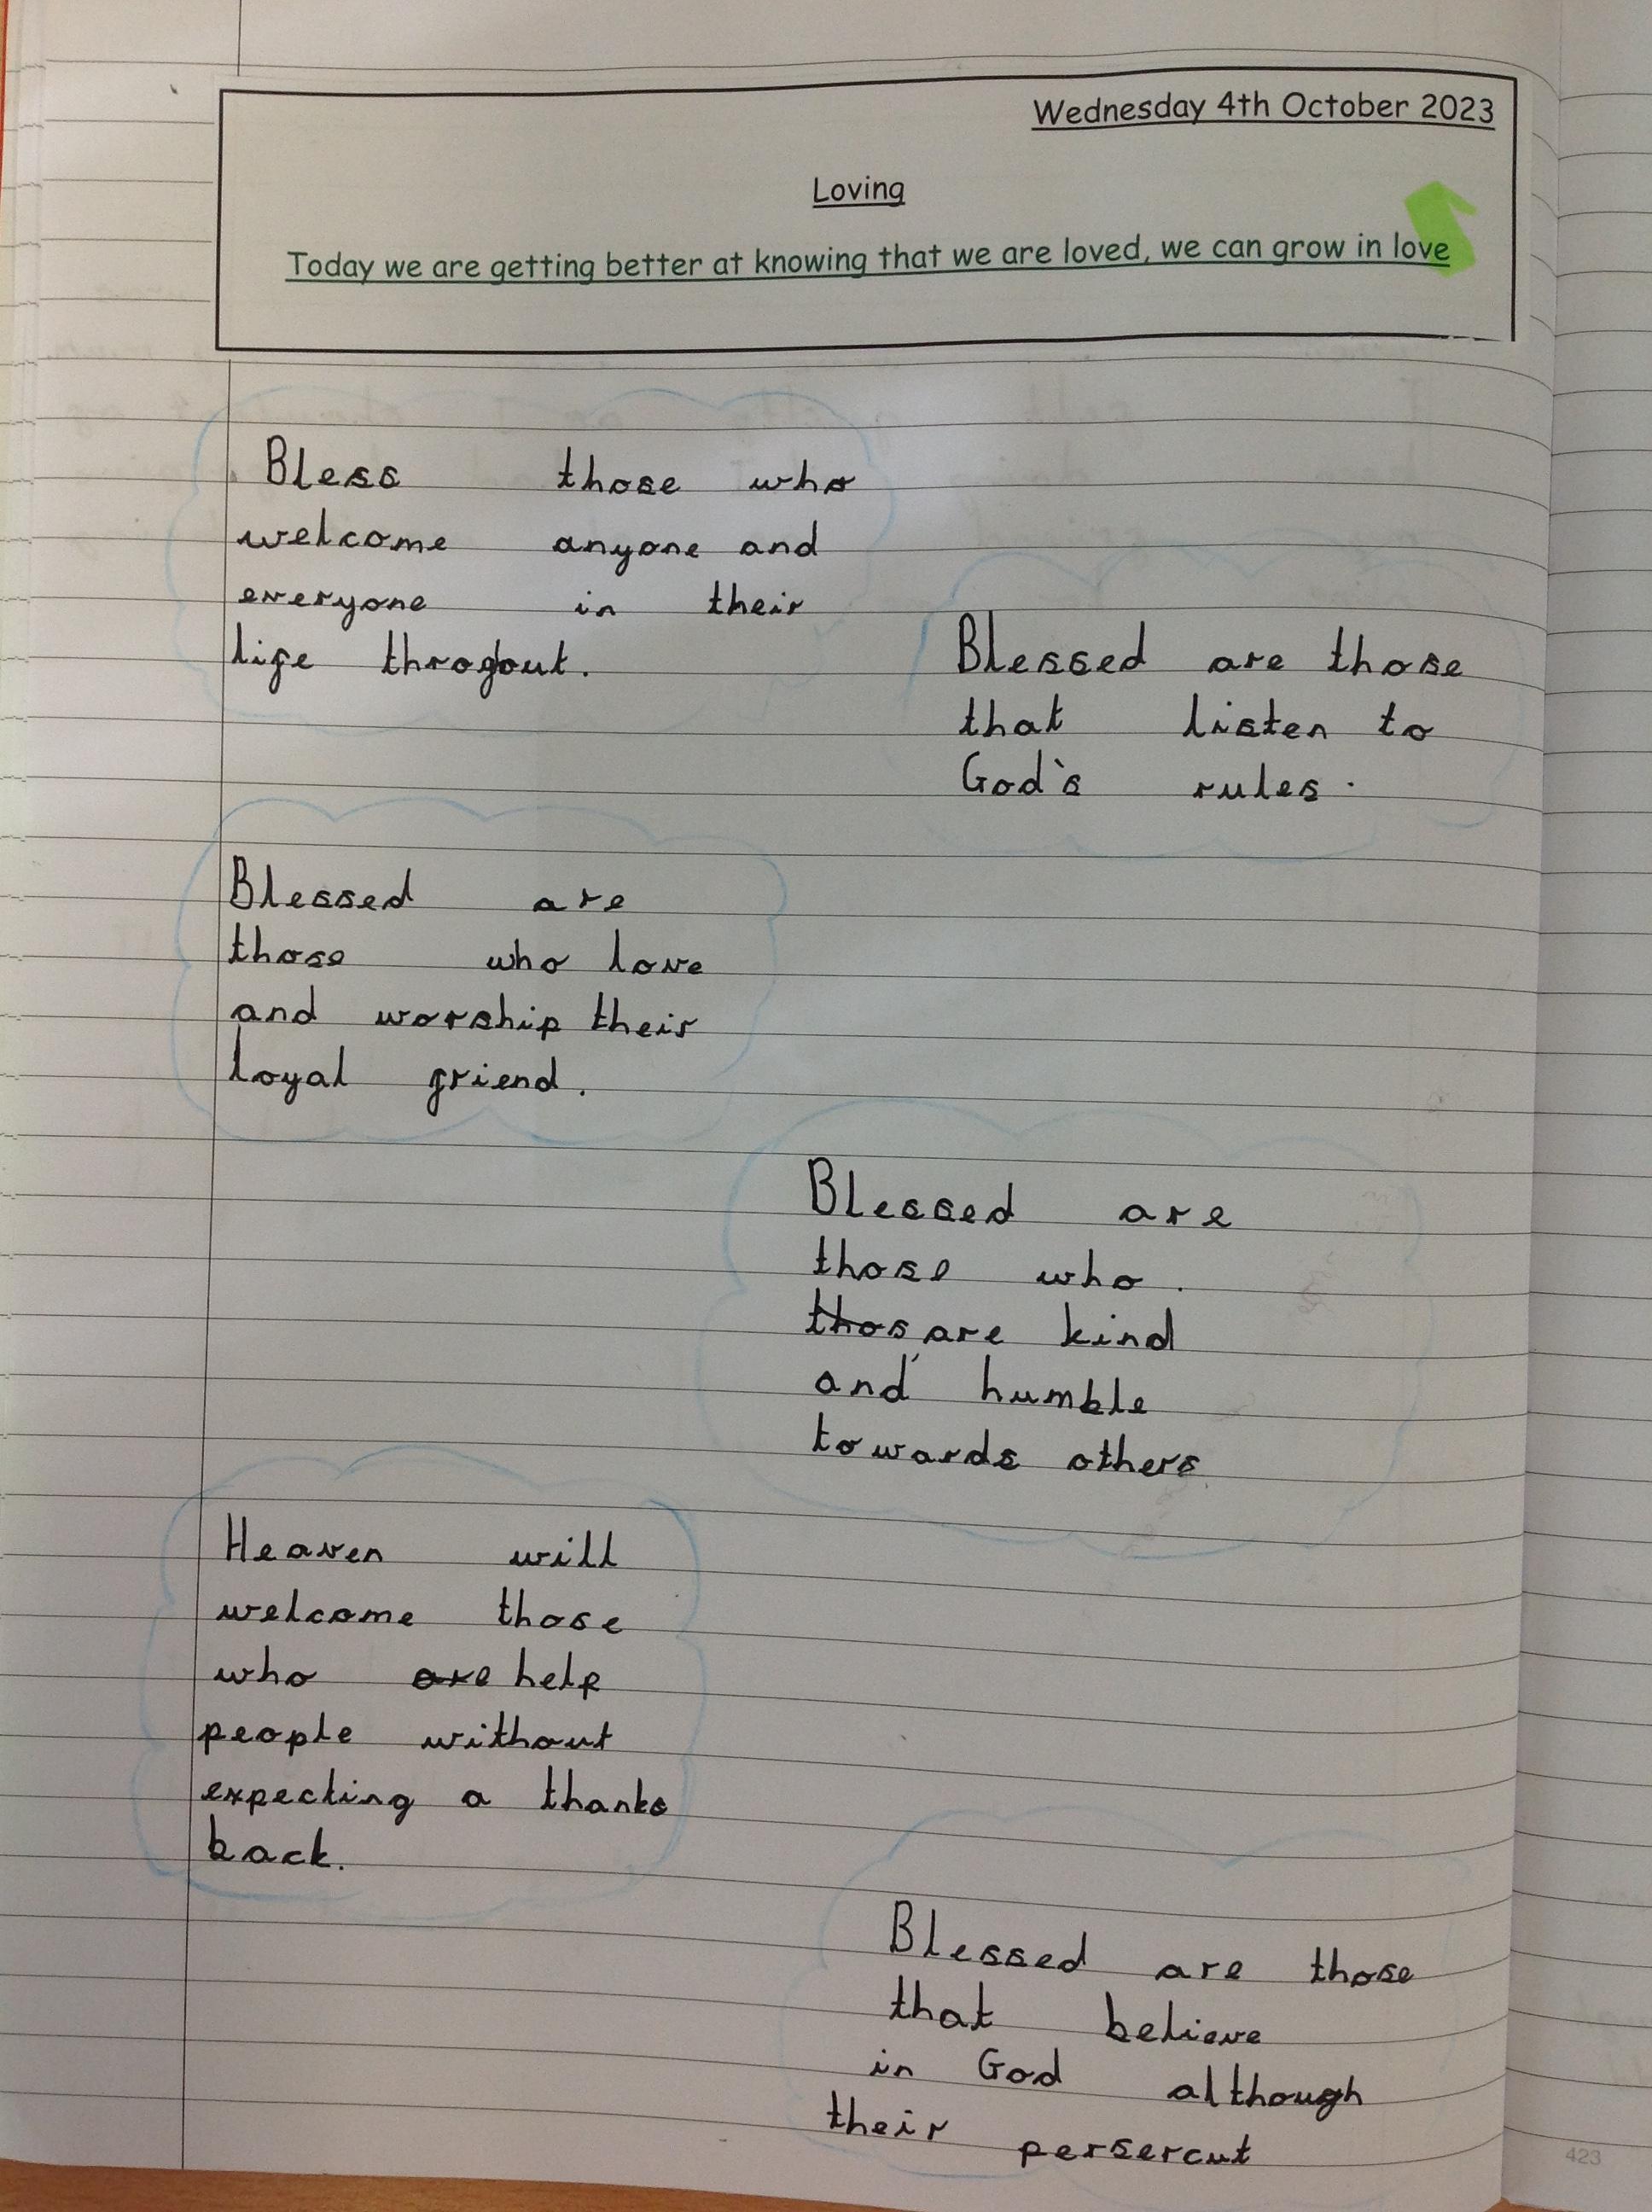 Wednesday 4th October 2023
Loving
Today we are getting better at knowing that we are loved, we can grow in love
Bless those who
welcome anyone and
everyone in their
life throgout.
Blessed are those
that listen to
God's rules.
Blessed are
those who love
and worship their
loyal friend.
Blessed are
those who.
thos are kind
and humble
towards others
Heaven will
welcome those
who are help
people without
expecting a thanks
back.
Blessed are those
that believe
in God although
their persercut
423